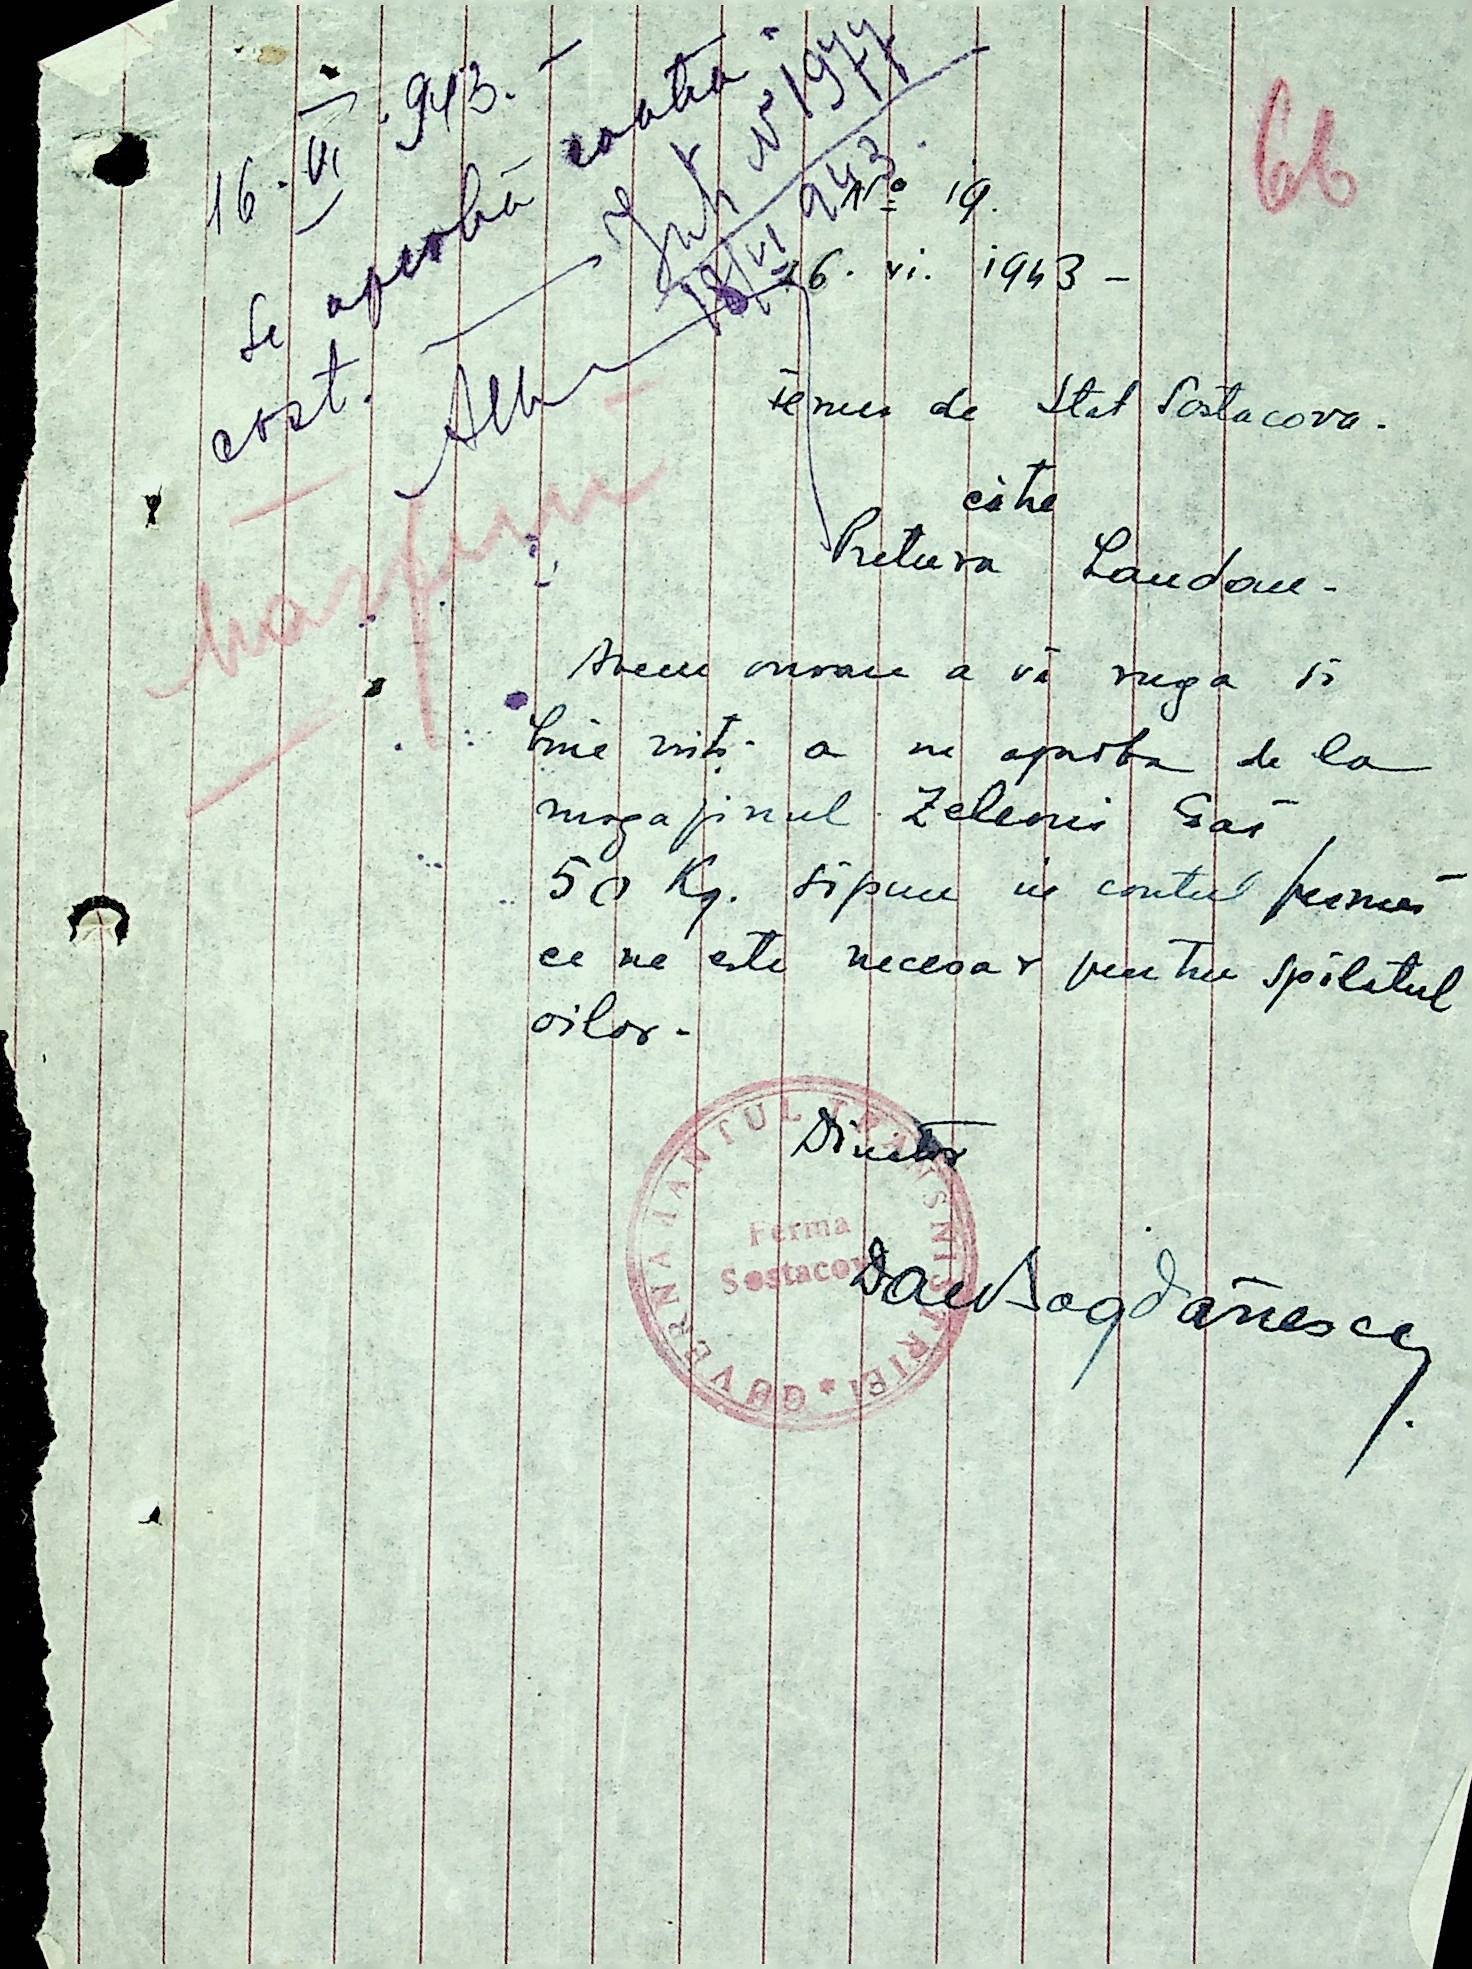 66
16. VI. 943. -
Se aprobă contra
cost.
Int № 1977
18/VI 943.
№ 19.
16. VI. 1943 -
Ferma de Stat Sostacova.
către
Pretura Landau -
Avem onoare a vă ruga să
bine voiți a ne aproba de la
magazinul Zelenii Gai
50 Kg. săpun în contul fermei
ce ne este necesar pentru spălatul
oilor -
Director
GUVERNAMANTUL TRANSNISTRIEI
Ferma
Sostacova
Dan Bogdănescu